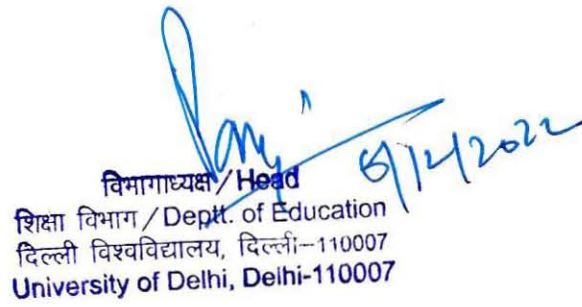 विभागाध्यक्ष / Head
शिक्षा विभाग / Deptt. of Education
दिल्ली विश्वविद्यालय, दिल्ली-110007
University of Delhi, Delhi-110007